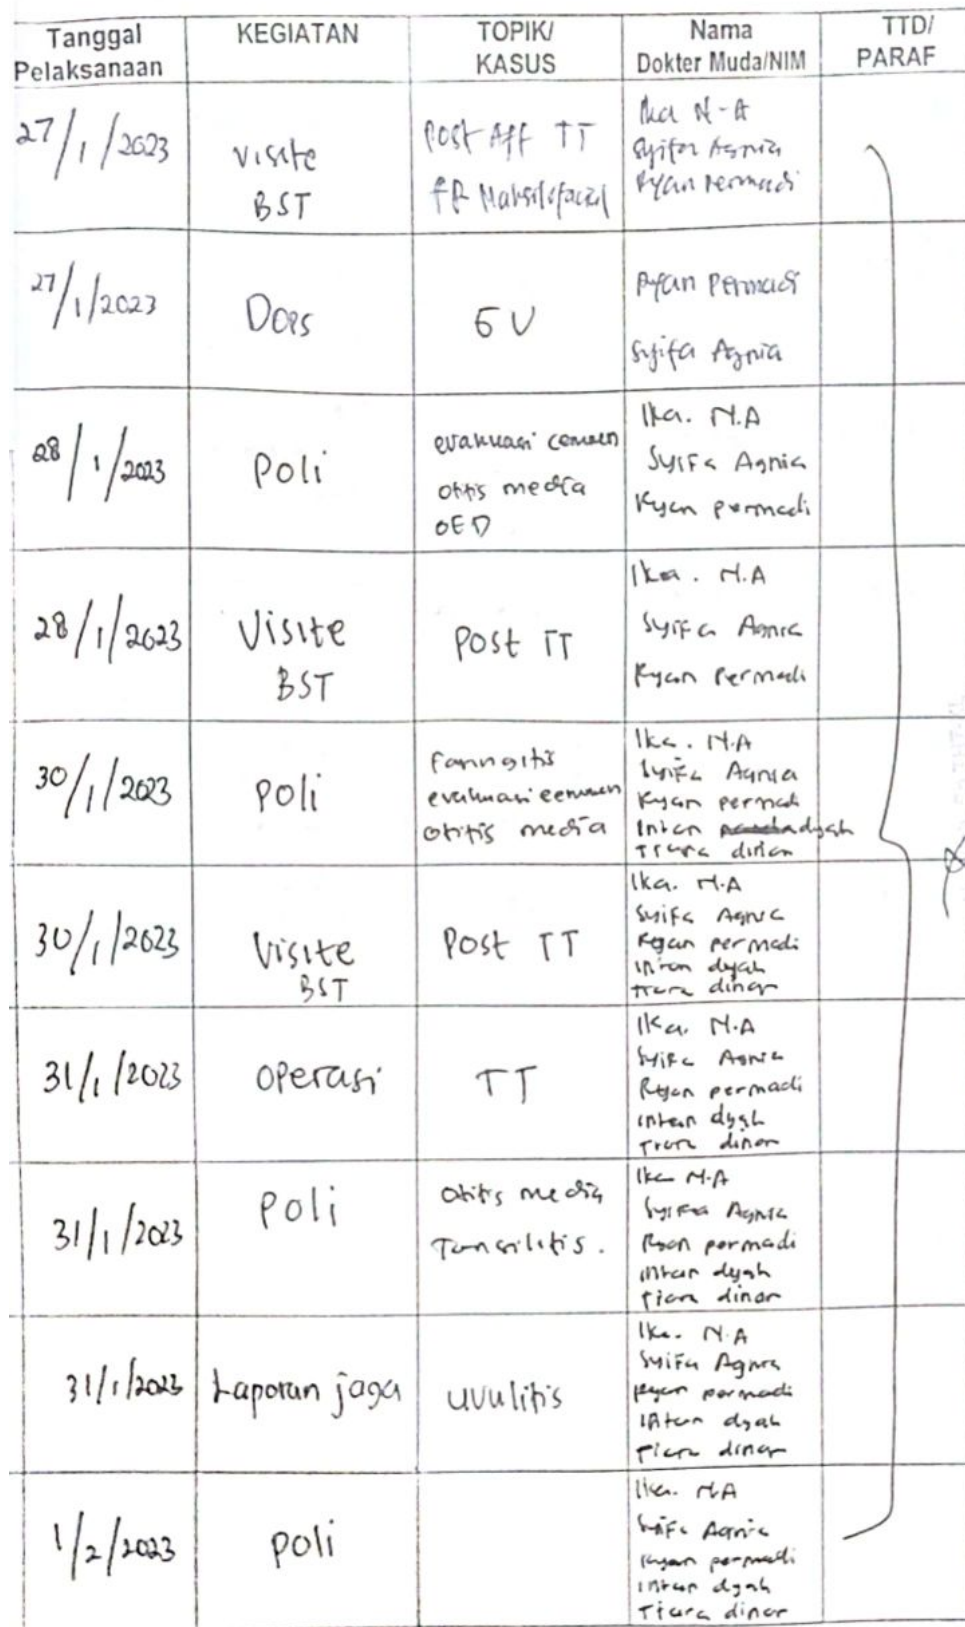 Tanggal Pelaksanaan KEGIATAN TOPIK/ KASUS Nama Dokter Muda/NIM TTD/ PARAF
27/1/2023 visite BST Post Aff TT FR Maksilofacial Ika N-A Syifa Agnia Ryan Permadi
27/1/2023 Dops 5 U Ryan Permadi Syifa Agnia
28/1/2023 Poli evakuasi cerumen otitis media OED Ika. N.A Syifa Agnia Ryan permadi
28/1/2023 Visite BST Post TT Ika. N.A Syifa Agnia Ryan Permadi
30/1/2023 Poli Faringitis evakuasi cerumen otitis media Ika. N.A Syifa Agnia Ryan permadi Intan dyah Tiara dinar
30/1/2023 Visite BST Post TT Ika. N.A Syifa Agnia Ryan permadi Intan dyah Tiara dinar
31/1/2023 Operasi TT Ika. N.A Syifa Agnia Ryan permadi Intan dyah Tiara dinar
31/1/2023 Poli Otitis media Tonsilitis. Ika N.A Syifa Agnia Ryan permadi Intan dyah Tiara dinar
31/1/2023 Laporan jaga uvulitis Ika. N.A Syifa Agnia Ryan permadi Intan dyah Tiara dinar
1/2/2023 Poli Ika. N.A Syifa Agnia Ryan permadi Intan dyah Tiara dinar